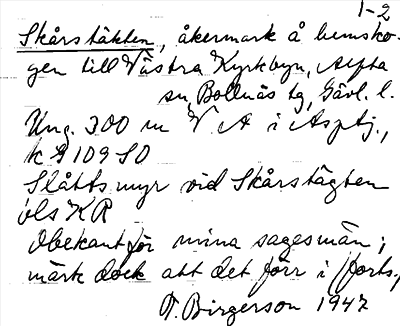 1-2
Skårstäkten, åkermark å hemsko-
gen till Västra Kyrkbyn, Alfta
sn, Bollnäs tg, Gävl. l.
Ung. 300 m V. A i
k 9109 SO
Slåttsmyr vid Skårstägten
ÖLS KR
Obekant för mina sagesmän;
märk dock att det förr i (forts.,
T. Birgerson 1947